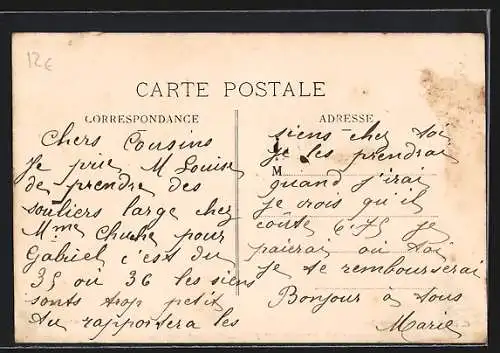 12€
CARTE POSTALE
CORRESPONDANCE
Chers Cousins
Je prie M Louise
de prendre des
souliers large chez
Mme Chuche pour
Gabriel c'est du
35 où 36 les siens
sonts trop petit
tu rapportera les
ADRESSE
siens chez toi
je les prendrai
M
quand j'irai
je crois qu'il
coûte 6.75 je
paierai ou toi
je te rembourserai
Bonjour à tous
Marie